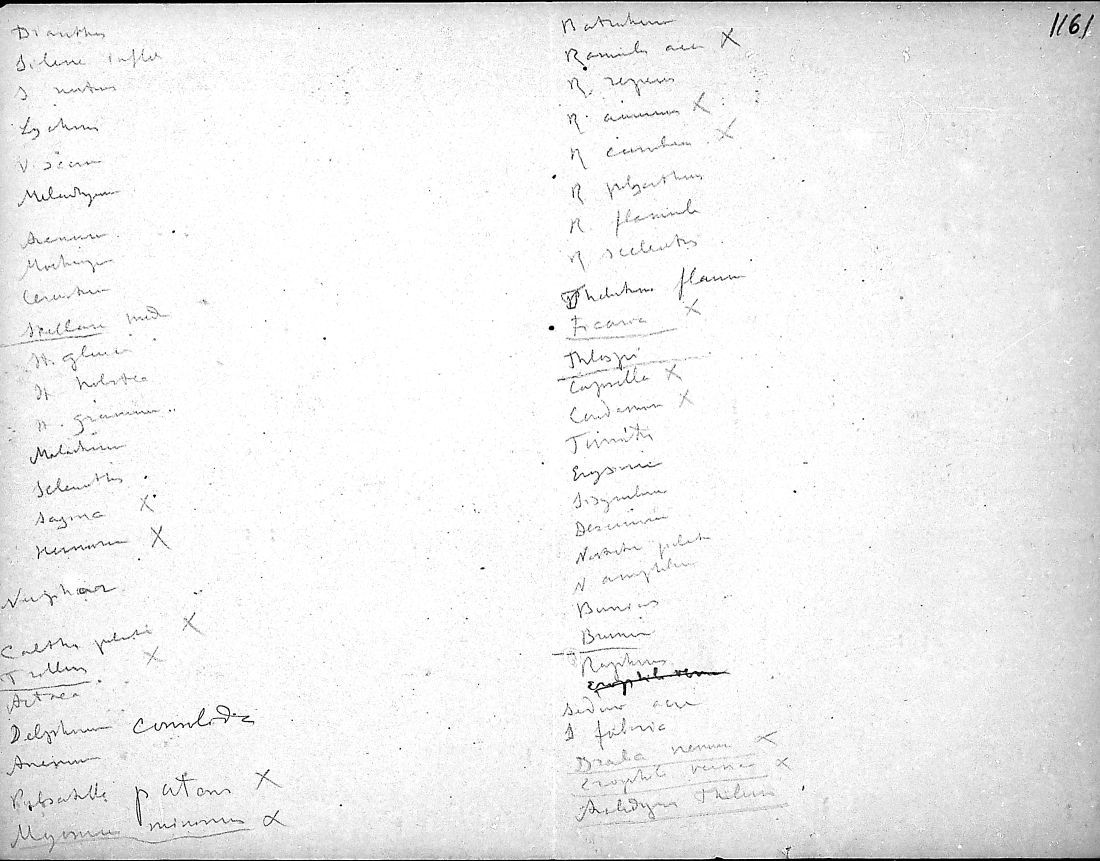 1161
Dianthus
Silene infla
S nutans
Lychnis
Viscaria
Melandryum
Arenaria
Moehringia
Cerastium
Stellaria med
St. glauca
St holostea
St. graminea
Malachium
Scleranthus
Sagina X
Herniaria X
Nuphar
Caltha palustris X
Trollius X
Actaea
Delphinium consolida
Anemone
Pulsatilla patens X
Myosurus minimus X
Batrachium
Ranuncls acer X
R. repens
R. X
R X
R polyanthemus
R. flammula
R sceleratus
Thalictrum flavum
Ficaria X
Thlaspi
Capsella X
Cardamine X
Turritis
Erysimum
Sisymbrium
Descurainia
Nasturt palustr
N amphibium
Bunias
Raphanus
Erophila verna
Sedum acre
S fabaria
Draba nemor X
Erophila verna X
Thaliana